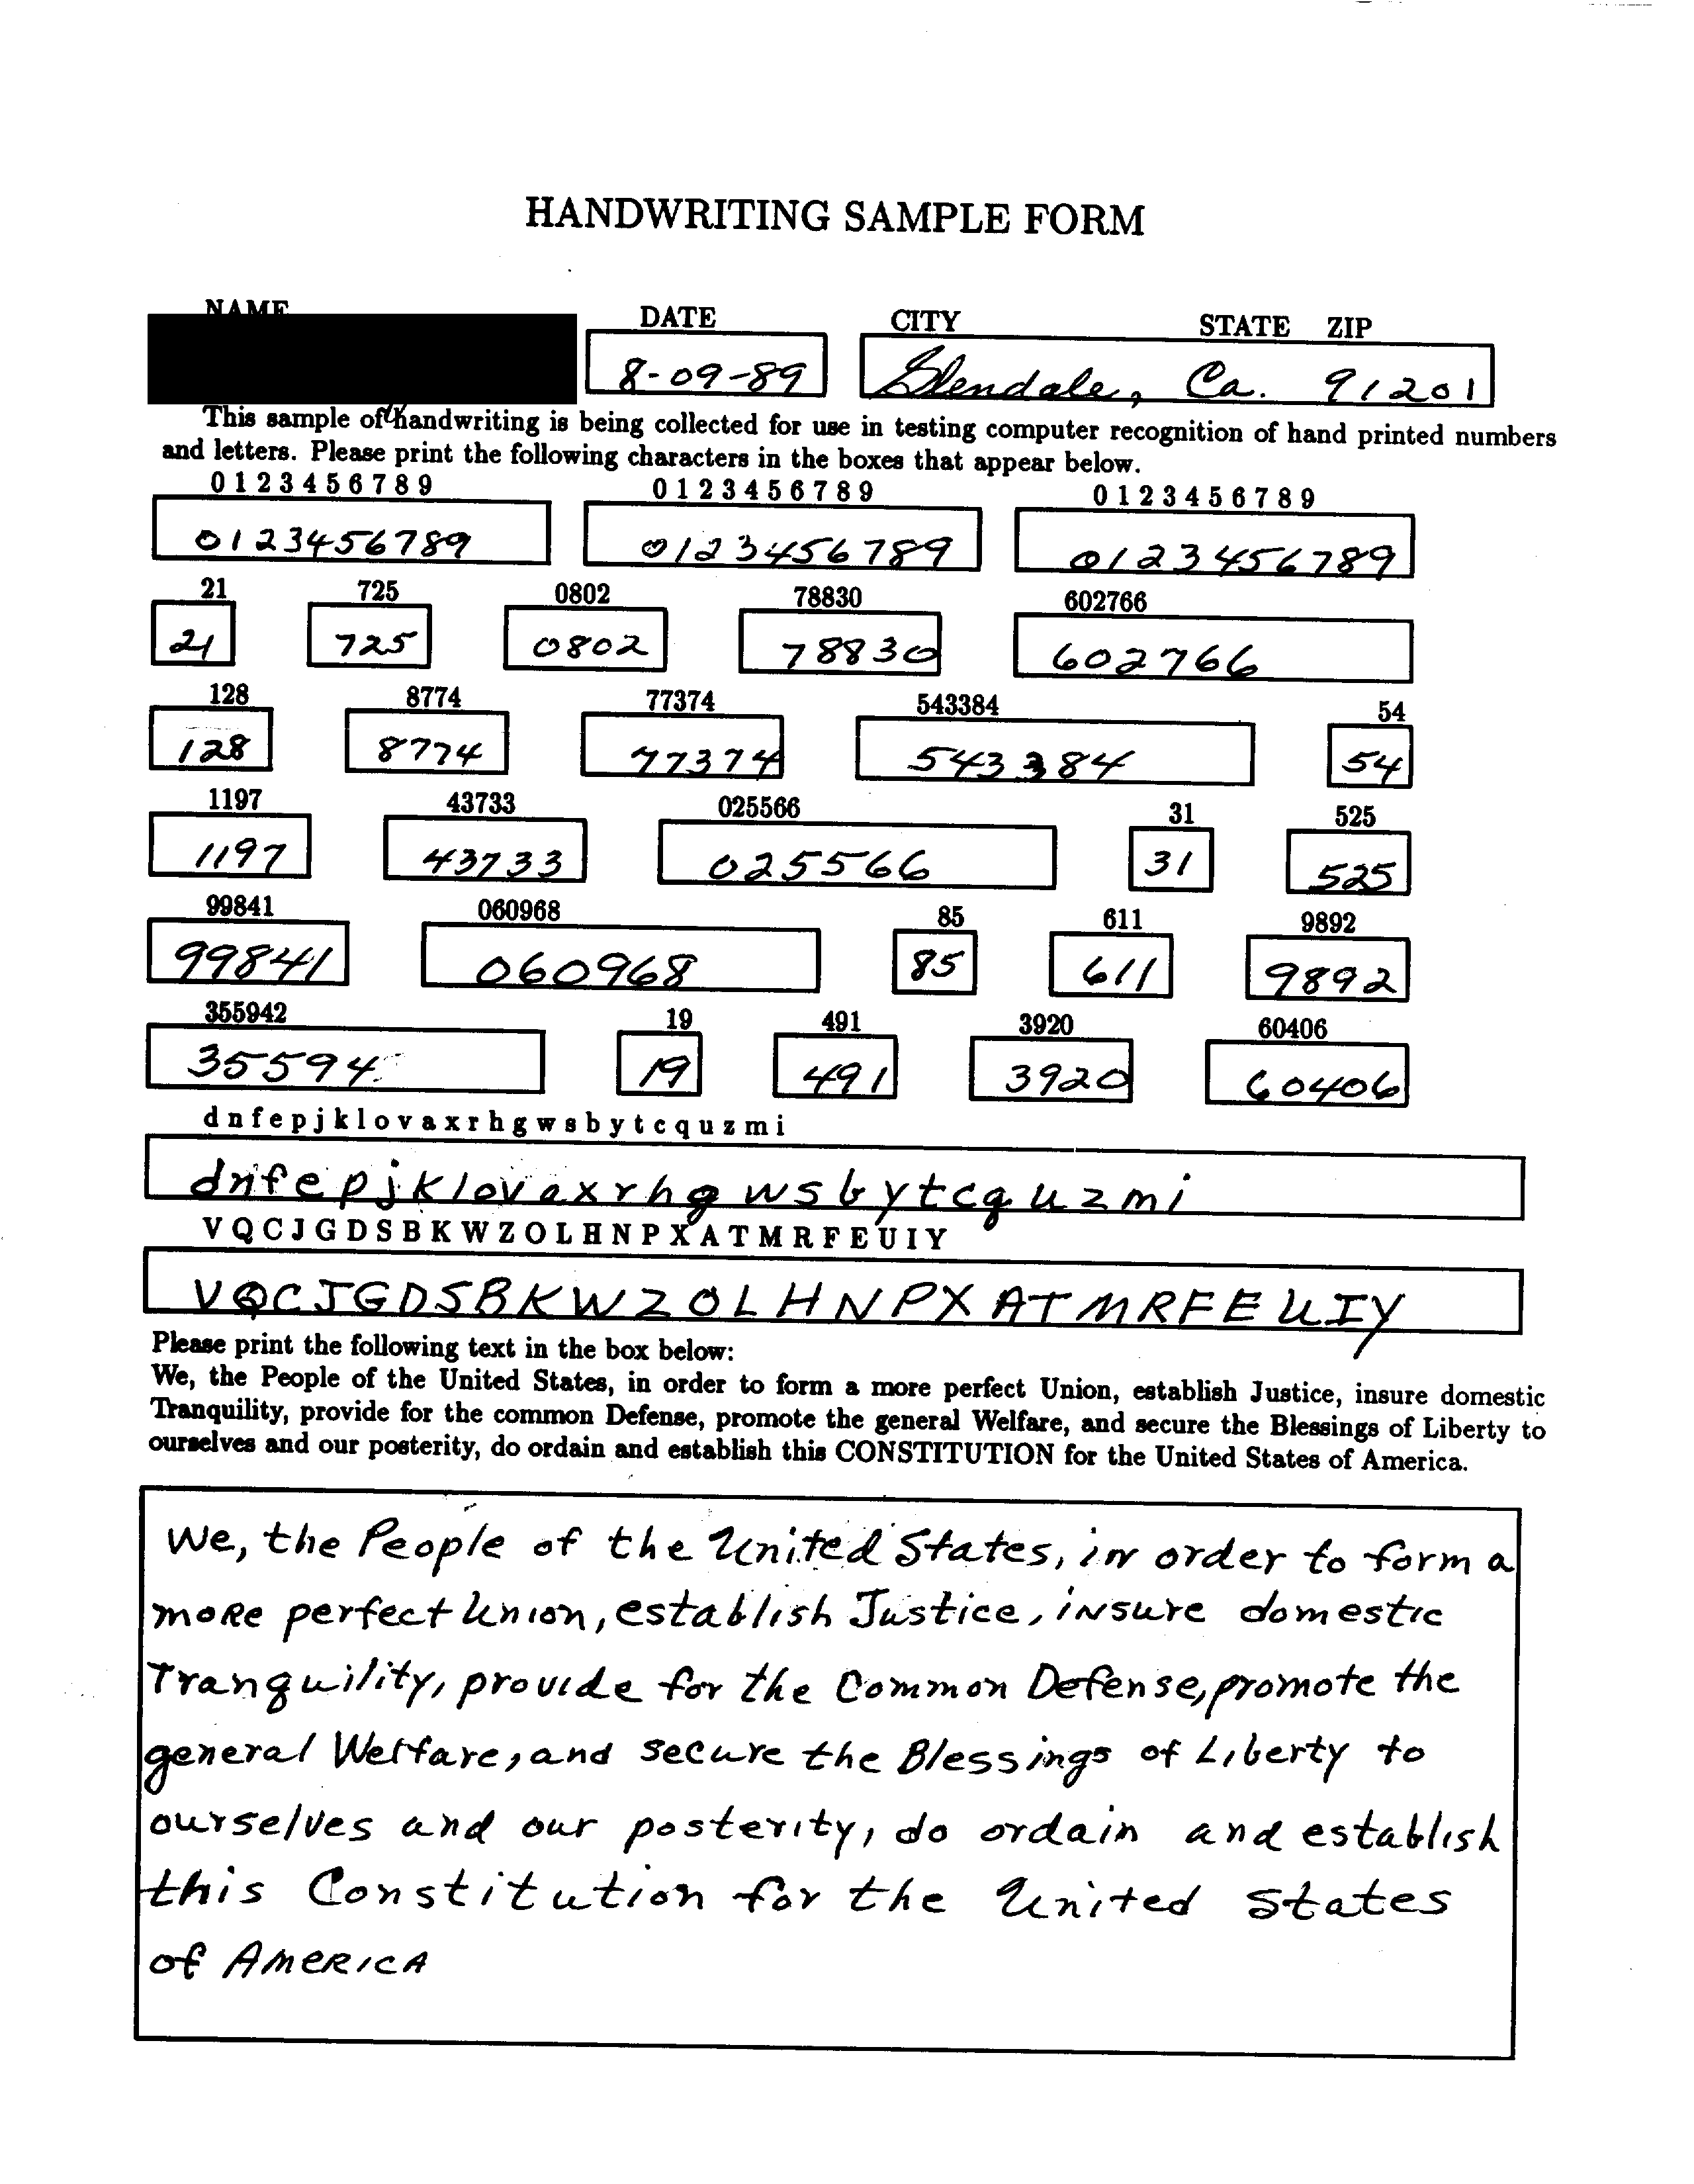 HANDWRITING SAMPLE FORM
NAME DATE CITY STATE ZIP
8-09-89 Glendale, Ca. 91201
This sample of handwriting is being collected for use in testing computer recognition of hand printed numbers
and letters. Please print the following characters in the boxes that appear below.
0 1 2 3 4 5 6 7 8 9 0 1 2 3 4 5 6 7 8 9 0 1 2 3 4 5 6 7 8 9
0123456789 0123456789 0123456789
21 725 0802 78830 602766
21 725 0802 78830 602766
128 8774 77374 543384 54
128 8774 77374 543384 54
1197 43733 025566 31 525
1197 43733 025566 31 525
99841 060968 85 611 9892
99841 060968 85 611 9892
355942 19 491 3920 60406
35594 19 491 3920 60406
d n f e p j k l o v a x r h g w s b y t c q u z m i
dnfepjklovaxrhgwsbytcquzmi
V Q C J G D S B K W Z O L H N P X A T M R F E U I Y
VQCJGDSBKWZOLHNPXATMRFEUIY
Please print the following text in the box below:
We, the People of the United States, in order to form a more perfect Union, establish Justice, insure domestic
Tranquility, provide for the common Defense, promote the general Welfare, and secure the Blessings of Liberty to
ourselves and our posterity, do ordain and establish this CONSTITUTION for the United States of America.
We, the People of the United States, in order to form a
more perfect Union, establish Justice, insure domestic
Tranquility, provide for the Common Defense, promote the
general Welfare, and secure the Blessings of Liberty to
ourselves and our posterity, do ordain and establish
this Constitution for the United States
of AMERICA